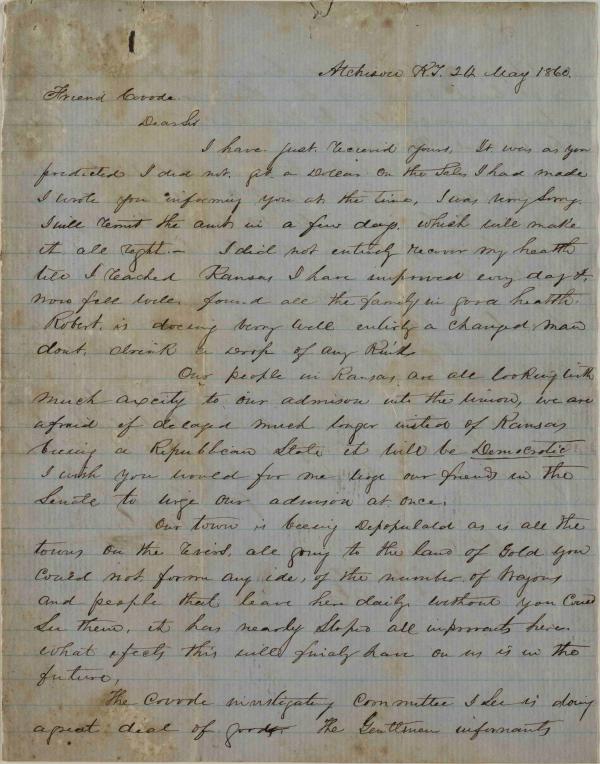 Atchison K.T. 24 May 1860.
Friend Covode
Dear Sir
I have just recieved yours. It was as you
predicted I did not get a Dollar on the Sales I had made
I wrote you informing you at the time, I was very Sorry.
I will remit the amt in a few days. which will make
it all right.— I did not entirely recover my health
till I reached Kansas I have improved evry day &
now fell well. found all the family in good health.
Robert. is doeing very well entirly a changed man
dont. drink a drop of any Kind
Our people in Kansas are all looking with
much anxcity to our admison into the Union, we are
afraid if delayed much longer insted of Kansas
being a Republican State it will be Democratic
I wish you would for me urge our friends in the
Senate to urge our admison at once.
Our town is beeing Depopulatd as is all the
towns on the River. all going to the land of Gold you
could not forme any ide, of the number of Wagons
and people that leave here daily without you Could
See them, it has nearly Stoped all improvnts here.
what efects this will finialy have on us is in the
future,
The Covode investigating Committee I See is doing
a great deal of good. The Gentlmen informants